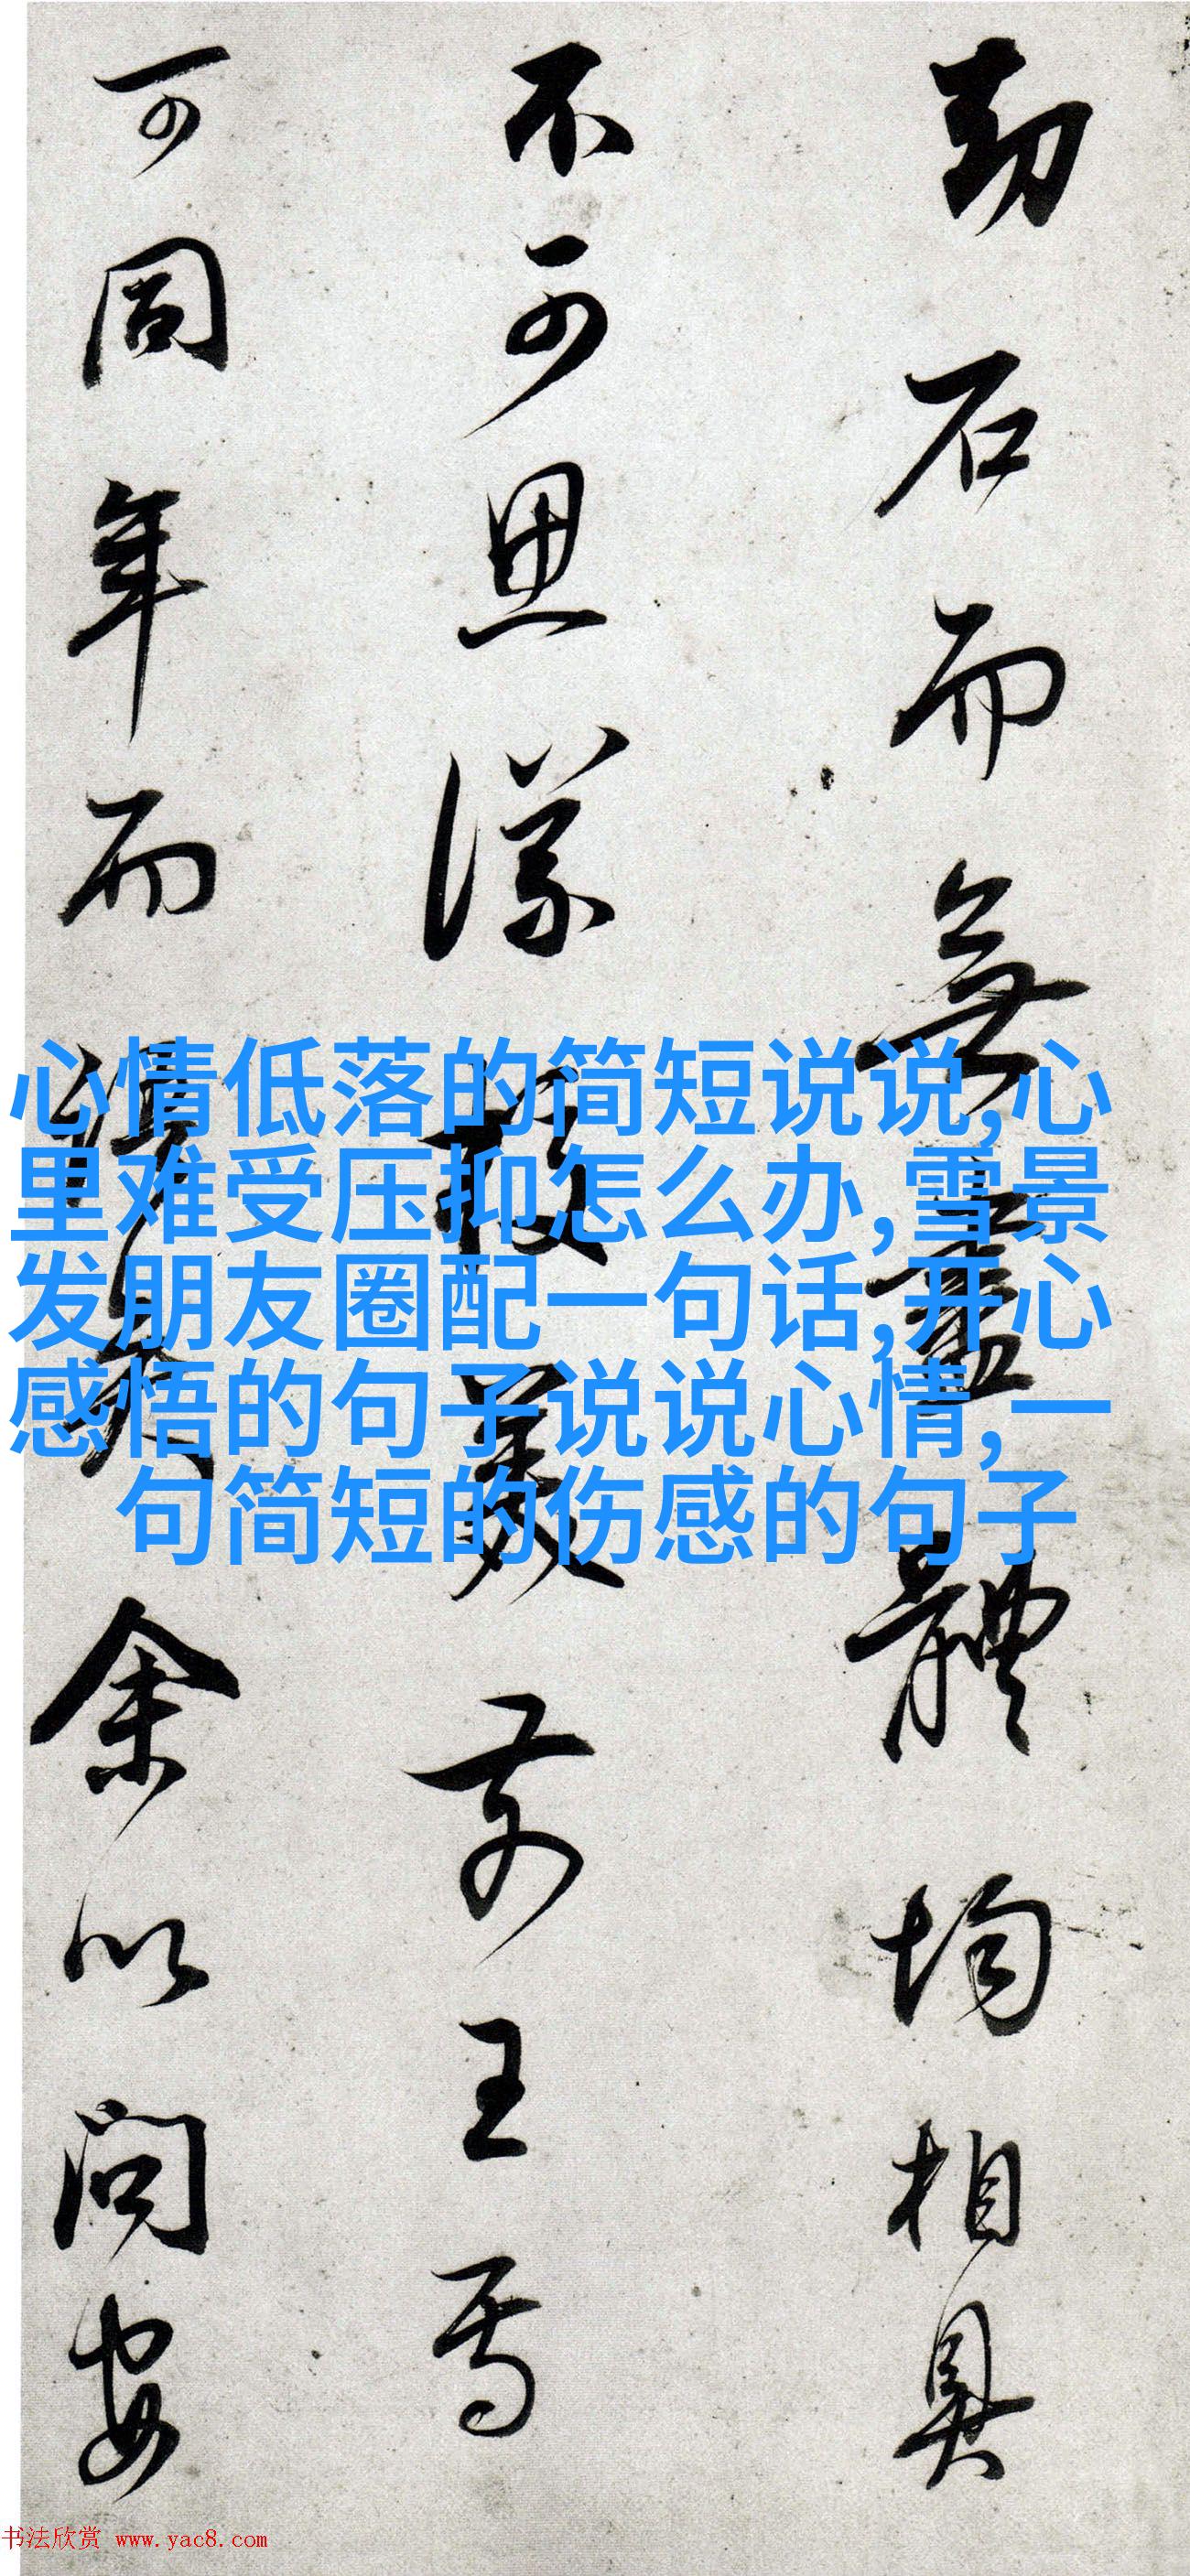 劫石而無盡體均相具
不可思議校美前王焉
可同年而語矣余以問安
心情低落的简短说说,心
里难受压抑怎么办,雪景
发朋友圈配一句话,开心
感悟的句子说说心情,一
句简短的伤感的句子
书法欣赏 www.yac8.com